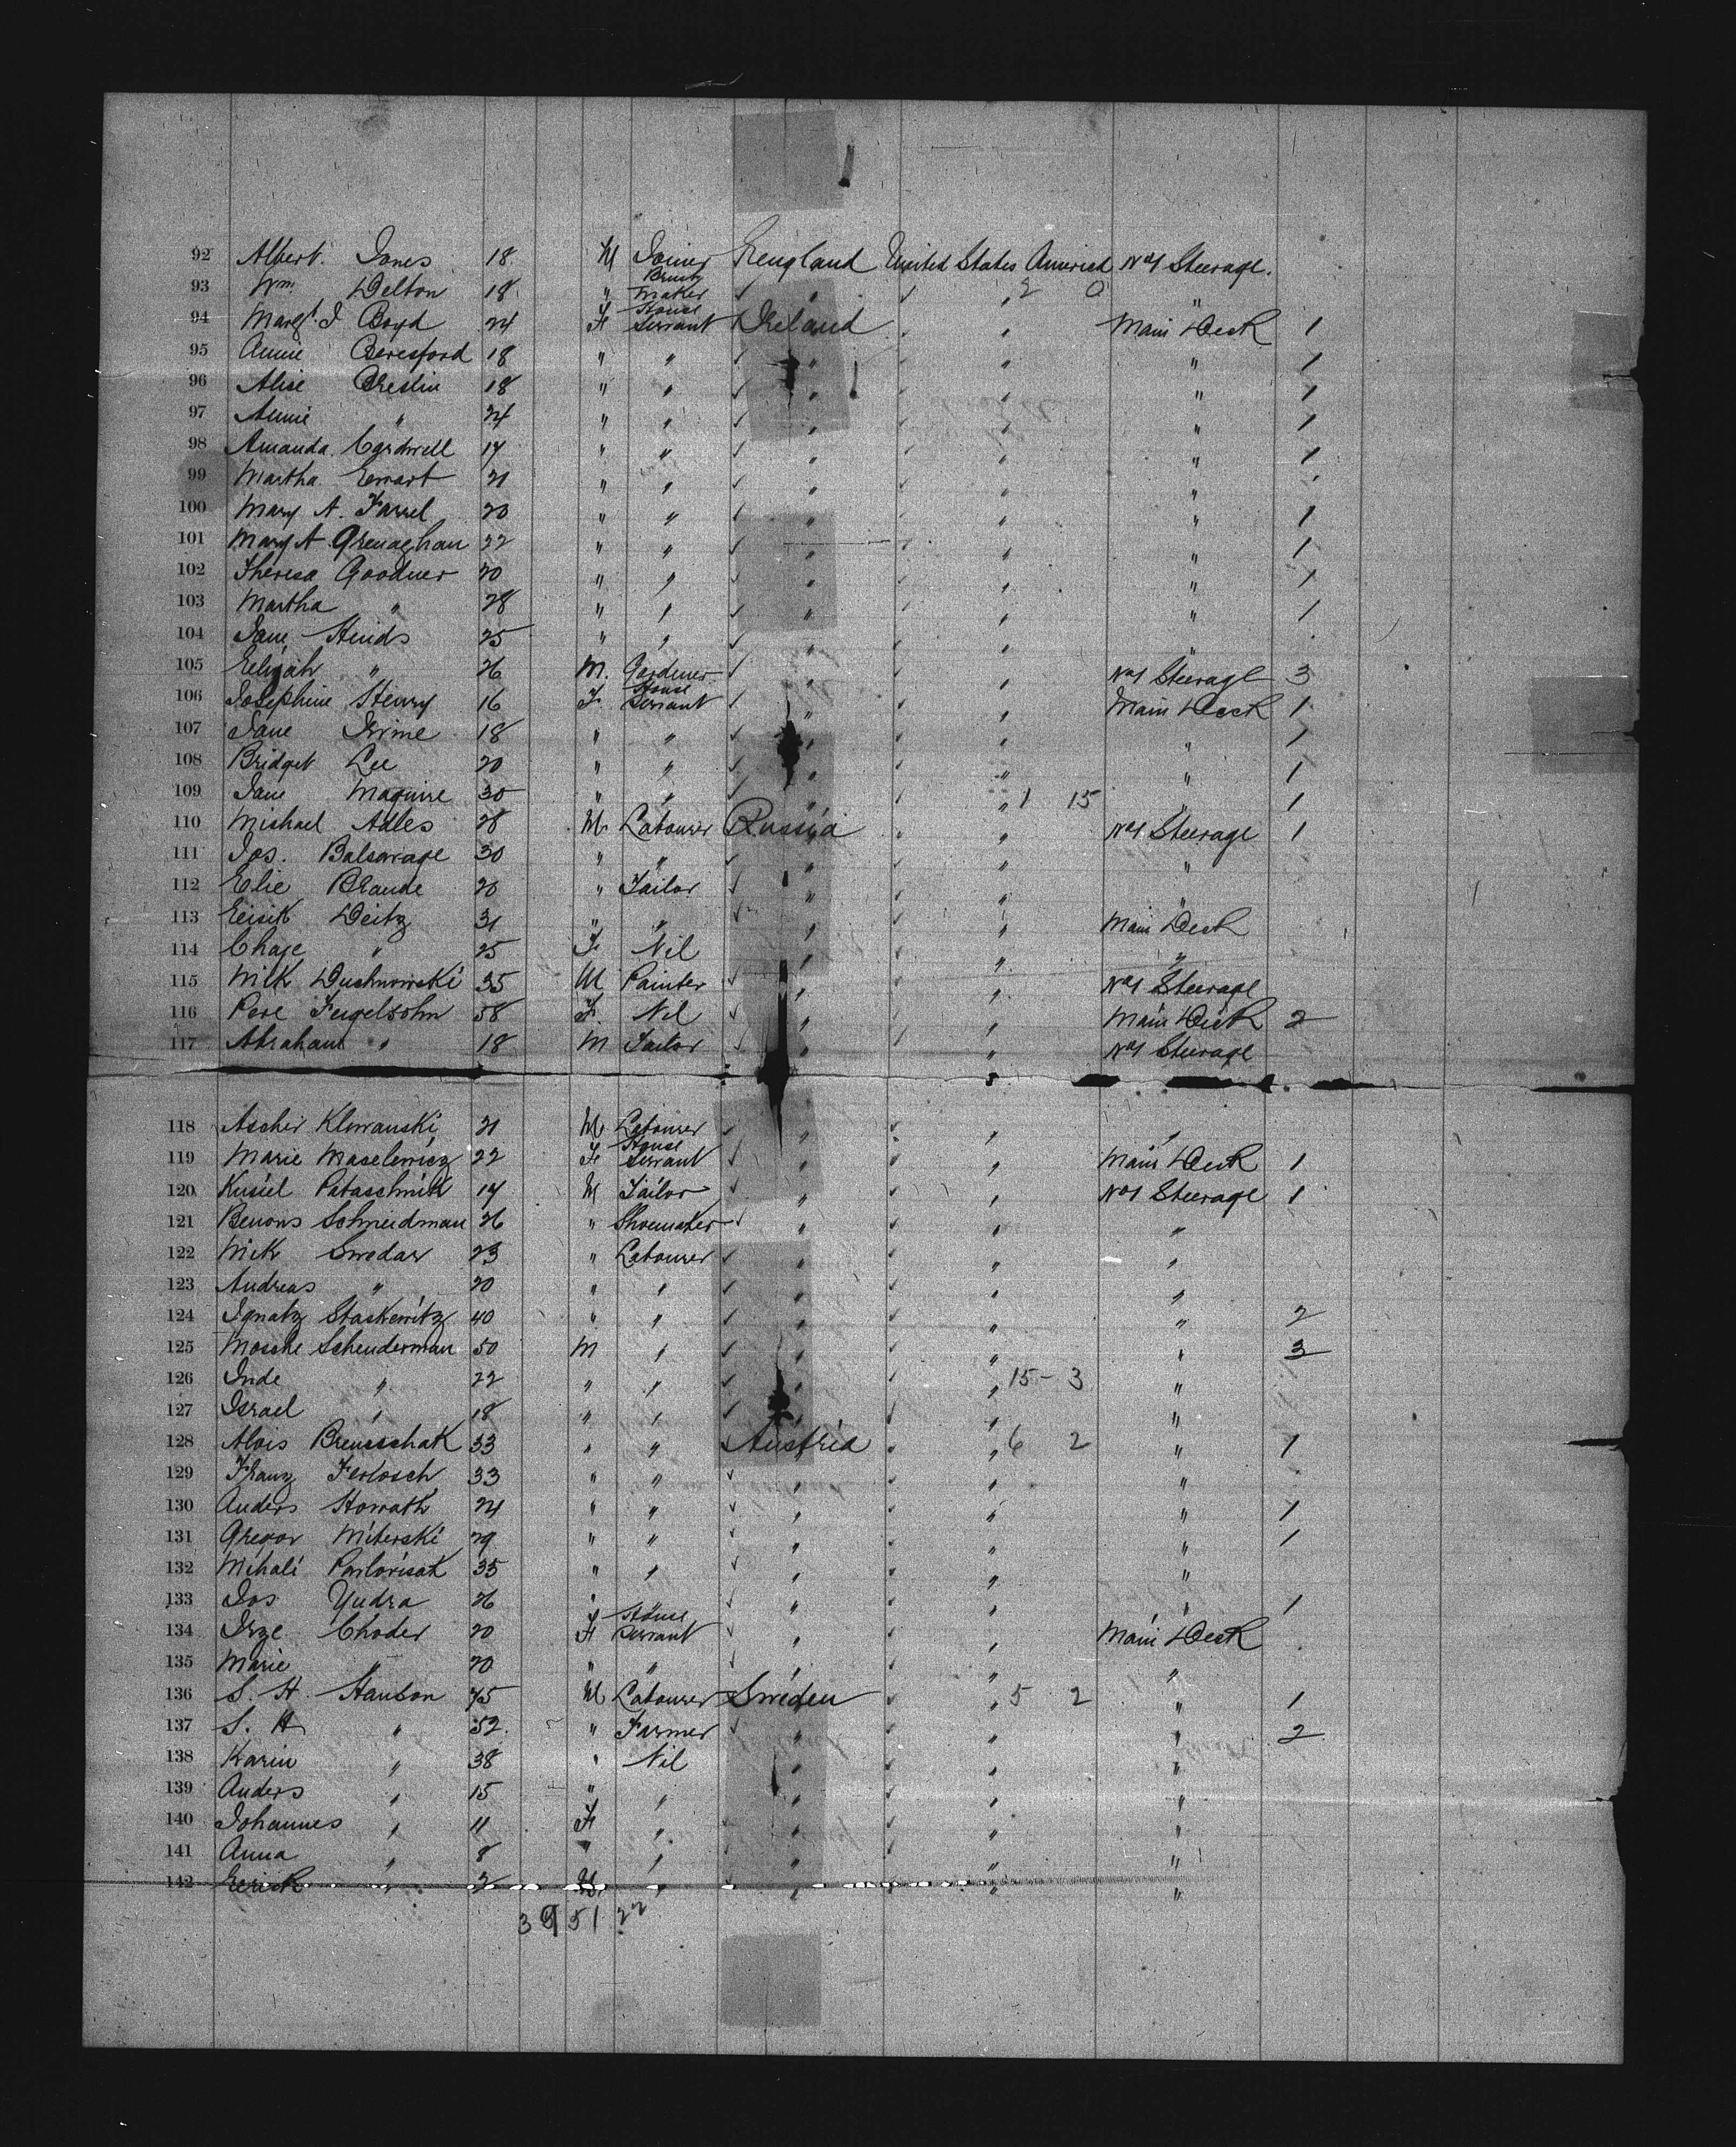 92 Albert Jones 18 M Joiner England United States America No 1 Steerage.
93 Wm Delton 18 " Brush maker " " 2 0 "
94 Margt J Boyd 24 F House Servant Ireland " Main Deck 1
95 Annie Beresford 18 " " " " " 1
96 Alise Breslin 18 " " " " " 1
97 Annie " 24 " " " " " 1
98 Amanda Cardwell 17 " " " " " 1
99 Martha Ewart 21 " " " " "
100 Mary A. Farrel 20 " " " " " 1
101 Mary A Grenaghan 22 " " " " " 1
102 Theresa Goodner 20 " " " " " 1
103 Martha " 28 " " " " " 1
104 Jane Hinds 25 " " " " "
105 Elijah " 26 M. Gardener " " No 1 Steerage 3
106 Josephine Henry 16 F House Servant " " Main Deck 1
107 Jane Irvine 18 " " " " " 1
108 Bridget Lee 20 " " " " " 1
109 Jane Maguire 30 " " " " 1 15 " 1
110 Michael Adles 28 M Labourer Russia " No 1 Steerage 1
111 Jos. Balsavage 30 " " " " "
112 Elie Braude 20 " Tailor " " "
113 Eisik Deitz 31 " " " " Main Deck
114 Chaje " 25 F Nil " " "
115 Mik Duchnowski 35 M Painter " " No 1 Steerage
116 Pere Feigelsohn 58 F. Nil " " Main Deck 2
117 Abraham " 18 M Tailor " " No 1 Steerage
118 Ascher Klowanski 21 M Labourer " " "
119 Marie Maselewicz 22 F House Servant " " Main Deck 1
120 Kusiel Pataschnik 17 M Tailor " " No 1 Steerage 1
121 Benons Schneidman 26 " Shoemaker " " "
122 Mik Swedar 23 " Labourer " " "
123 Andreas " 20 " " " " "
124 Ignatz Staskewitz 40 " " " " " 2
125 Mosche Schenderman 50 M " " " " 3
126 Inde " 22 " " " " 15 - 3 "
127 Israel " 18 " " " " "
128 Alois Breusschak 33 " " Austria " 6 2 " 1
129 Franz Ferlosch 33 " " " " "
130 Anders Horrath 24 " " " " " 1
131 Gregor Miterski 29 " " " " " 1
132 Mihali Pavlorisak 35 " " " " "
133 Jos Yudra 26 " " " " 1
134 Irze Choder 20 F House Servant " " Main Deck
135 Marie " 20 " " " " "
136 S. H. Hanson 45 M Labourer Sweden " 5 2 " 1
137 S. H " 52. " Farmer " " " 2
138 Karin " 38 " Nil " " "
139 Anders " 15 " " " " "
140 Johannes " 11 F " " " "
141 Anna " 8 " " " " "
142 Eerick " 2 M " " " "
39 51 22